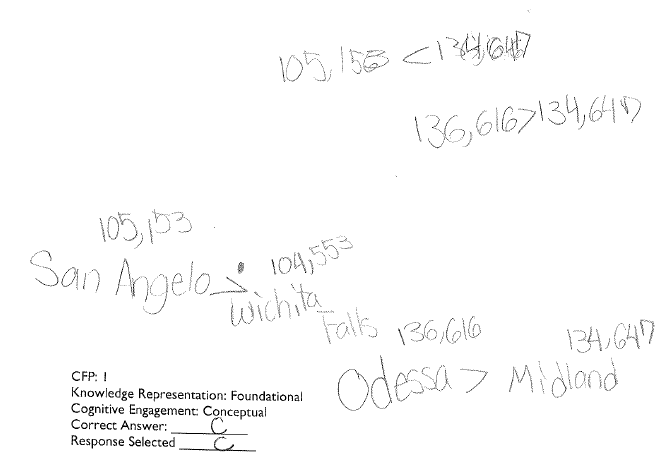 105,153 < 134,647
136,616 > 134,647
105,153
San Angelo > 104,553
Wichita
Falls 136,616 134,647
Odessa > Midland
CFP: 1
Knowledge Representation: Foundational
Cognitive Engagement: Conceptual
Correct Answer: C
Response Selected C